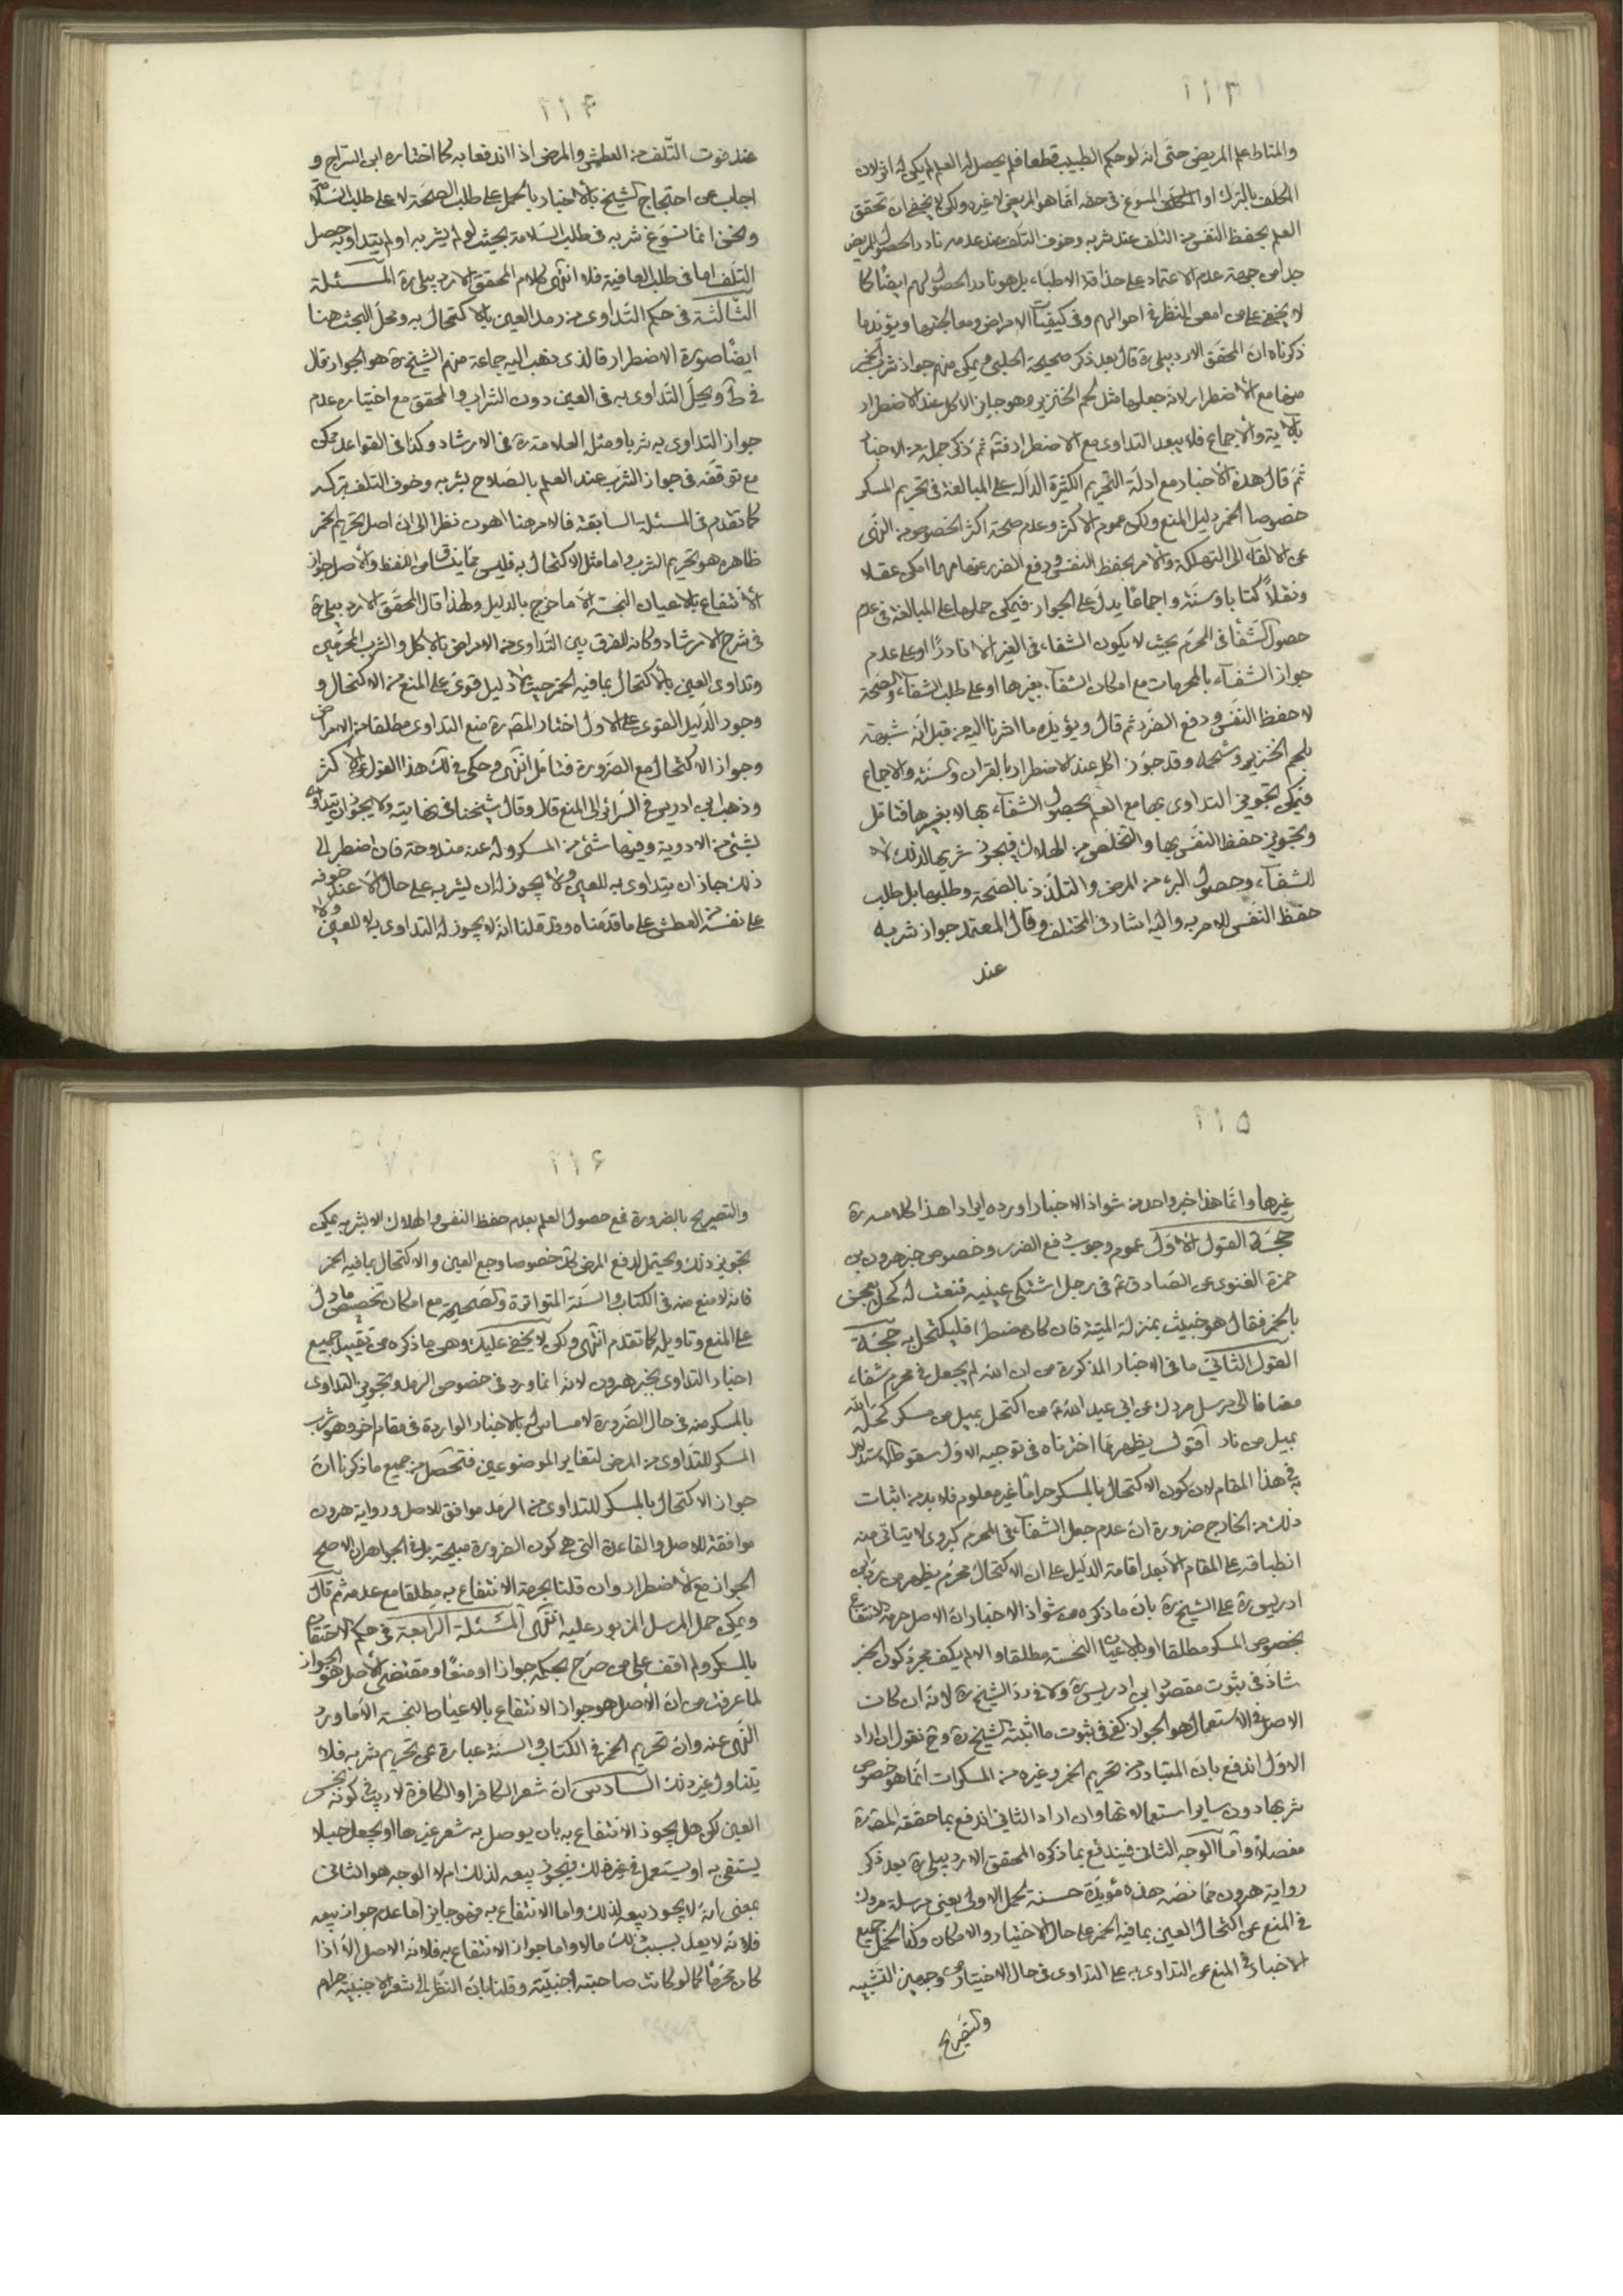 ١١٣
والمناط علم المريض حتى انه لو حكم الطبيب قطعا فلم يحصل له العلم لم يكن له اثر لان
المكلف بالترك او المكلف المسوغ في حقه انما هو المريض لا غيره ولكن لا يخفى ان تحقق
العلم بحفظ النفس من التلف عند شربه وخوف التلف عند عدمه نادر الحصول للمريض
جدا من جهة عدم الاعتماد على حذاقة الاطباء بل هو نادر الحصول لهم ايضا كما
لا يخفى على من امعن النظر في احوالهم وفي كيفيات الامراض ومعالجتها ويؤيد ما
ذكرناه ان المحقق الاردبيلي ره قال بعد ذكر صحيحة الحلبي يمكن منهم جواز شرب الخمر
صرفا مع الاضطرار لانه جعلها مثل لحم الخنزير وهو جايز الاكل عند الاضطرار
بالاية والاجماع فلا يبعد التداوى مع الاضطرار فتأمل ثم ذكر جملة من الاخبار
ثم قال هذه الاخبار مع ادلة التحريم الكثيرة الدالة على المبالغة في تحريم المسكر
خصوصا الخمر دليل المنع ولكن عموم الاكثر وعدم صحة اكثر الخصوص من النهى
عن الالقاء الى التهلكة والامر بحفظ النفس ودفع الضرر عنها مهما امكن عقلا
ونقلا كتابا وسنة واجماعا يدل على الجواز فيمكن حملها على المبالغة في عدم
حصول الشفاء في المحرم بحيث لا يكون الشفاء في الغير الا نادرا او على عدم
جواز الشفاء بالمحرمات مع امكان الشفاء بغيرها او على طلب الشفاء والصحة
لا حفظ النفس ودفع الضرر ثم قال ويؤيده ما اشرنا اليه من قبل انه شبهه
بلحم الخنزير وشحمه وقد جوز اكله عند الاضطرار بالقران والسنة والاجماع
فيمكن تجويز التداوى بها مع العلم بحصول الشفاء بها لا بغيرها فتامل
وتجويز حفظ النفس بها والتخلص من الهلاك فيجوز شربها لذلك لا
للشفاء وحصول البرء من المرض والتلذذ بالصحة وطلبها بل طلب
حفظ النفس للامر به واليه اشار في المختلف وقال المعتمد جواز شربه
عند
١١٤
عند خوف التلف من العطش والمرض اذا اندفعا به كما اختاره ابن السراج و
اجاب عن احتجاج الشيخ بالاخبار بالحمل على طلب الصحة لا على طلب السلامة
ونحن انما نسوغ شربه في طلب السلامة بحيث لو لم يشربه او لم يتداو به حصل
التلف اما في طلب العافية فلا انتهى كلام المحقق الاردبيلي ره المسئلة
الثالثة في حكم التداوى من رمد العين بالاكتحال به ومحل البحث هنا
ايضا صورة الاضطرار فالذى ذهب اليه جماعة منهم الشيخ ره هو الجواز قال
في ط ويحل التداوى به في العين دون الشراب والمحقق مع اختياره عدم
جواز التداوى به شربا ومثله العلامة ره في الارشاد وكذا في القواعد
مع توقفه في جواز الشرب عند العلم بالصلاح بشربه وخوف التلف بتركه
كما تقدم في المسئلة السابقة فالامر هنا اهون نظرا الى ان اصل تحريم الخمر
ظاهره هو تحريم الشرب واما مثل الاكتحال به فليس مما ينساق من اللفظ والاصل جواز
الانتفاع بالاعيان النجسة الا ما خرج بالدليل ولهذا قال المحقق الاردبيلي ره
في شرح الارشاد وكانه للفرق بين التداوى من الامراض بالاكل والشرب المحرمين
وتداوى العين بالاكتحال بما فيه الخمر حيث لا دليل قوى على المنع من الاكتحال و
وجود الدليل القوى على الاول اختار المص ره منع التداوى مطلقا من الامراض
وجواز الاكتحال مع الضرورة فتامل انتهى وحكى في لك هذا القول عن الاكثر
وذهب ابن ادريس في السرائر الى المنع قال وقال شيخنا في نهايته ولا يجوز ان يتداوى
بشىء من الادوية وفيها شىء من المسكر وله عنه مندوحة فان اضطر الى
ذلك جاز ان يتداوى به للعين ولا يجوز له ان يشربه على حال الا عند خوفه
على نفسه من العطش على ما قدمناه وقد قلنا انه لا يجوز له التداوى به لا للعين ولا
١١٥
غيرها وانما هذا خبر واحد من شواذ الاخبار اورده ايرادا هذا كلامه ره
حجة القول الاول عموم وجوب دفع الضرر وخصوص خبر هرون بن
حمزة الغنوى عن الصادق ع في رجل اشتكى عينيه فنعت له كحل يعجن
بالخمر فقال هو خبيث بمنزلة الميتة فان كان مضطرا فليكتحل به حجة
القول الثاني ما في الاخبار المذكورة من ان الله لم يجعل في محرم شفاء
مضافا الى مرسل مروك عن ابي عبد الله ع من اكتحل بميل من مسكر كحله الله
بميل من نار اقول يظهر مما اخترناه في توجيه الاول سقوط الاستدلال
به في هذا المقام لان كون الاكتحال بالمسكر حراما غير معلوم فلا بد من اثبات
ذلك من الخارج ضرورة ان عدم جعل الشفاء في المحرم كبروى لا يتاتى منه
انطباقه على المقام الا بعد اقامة الدليل على ان الاكتحال محرم يظهر من رد ابن
ادريس ره على الشيخ ره بان ما ذكره من شواذ الاخبار ان الاصل حرمة الانتفاع
بخصوص المسكر مطلقا او بالاعيان النجسة مطلقا والا لم يكف مجرد كون الخبر
شاذ في ثبوت مقصود ابن ادريس ره ولا في رد الشيخ ره لانه ان كان
الاصل في الاستعمال هو الجواز كفى في ثبوت ما اثبته الشيخ ره وح نقول ان اراد
الاول اندفع بان المتبادر من تحريم الخمر وغيره من المسكرات انما هو خصوص
شربها دون ساير استعمالاتها وان اراد الثاني اندفع بما حققه المص ره
مفصلا واما الوجه الثاني فيندفع بما ذكره المحقق الاردبيلي ره بعد ذكر
رواية هرون مما نصه هذه مؤيدة حسنة لحمل الاولى يعنى مرسلة مروك
في المنع عن اكتحال العين بما فيه الخمر على حال الاختيار والامكان وكذا لحمل جميع
الاخبار في المنع عن التداوى به على التداوى في حال الاختيار وجهين التشبيه
والتصريح
١١٦
والتصريح بالضرورة فمع حصول العلم بعدم حفظ النفس والهلاك الا بشربه يمكن
تجويز ذلك ويحتمل لدفع المرض كك خصوصا وجع العين والاكتحال بما فيه الخمر
فانه لا منع منه في الكتاب والسنة المتواترة والصحيحة مع امكان تخصيص ما دل
على المنع وتاويله كما تقدم انتهى ولكن لا يخفى عليك وهن ما ذكره من تقييد جميع
اخبار التداوى بخبر هرون لانه انما ورد في خصوص الرمد وتجويز التداوى
بالمسكر منه في حال الضرورة لا مساس له بالاخبار الواردة في مقام اخر وهو شرب
المسكر للتداوى من المرض لتغاير الموضوعين فتحصل من جميع ما ذكرنا ان
جواز الاكتحال بالمسكر للتداوى من الرمد موافق للاصل ورواية هرون
موافقة للاصل والقاعدة التي هي كون الضرورة مبيحة بل في الجواهر ان الاصح
الجواز مع الاضطرار وان قلنا بحرمة الانتفاع به مطلقا مع عدمه ثم قال
ويمكن حمل المرسل المزبور عليه انتهى المسئلة الرابعة في حكم الاحتقان
بالمسكر ولم اقف على من صرح بحكمه جوازا او منعا ومقتضى الاصل هو الجواز
لما عرفت من ان الاصل هو جواز الانتفاع بالاعيان النجسة الا ما ورد
النهى عنه وان تحريم الخمر في الكتاب والسنة عبارة عن تحريم شربه فلا
يتناول غير ذلك السادس ان شعر الكافر او الكافرة لا ريب في كونه نجس
العين لكن هل يجوز الانتفاع به بان يوصل به شعر غيرها او يجعل حبلا
يستقى به او يستعمل في غير ذلك فيجوز بيعه لذلك ام لا الوجه هو الثاني
بمعنى انه لا يجوز بيعه لذلك واما الانتفاع به فهو جايز اما عدم جواز بيعه
فلانه لا يعد بسبب ذلك مالا واما جواز الانتفاع به فلانه الاصل الا اذا
كان محرما كما لو كانت صاحبته اجنبية وقلنا بان النظر الى شعر الاجنبية حرام